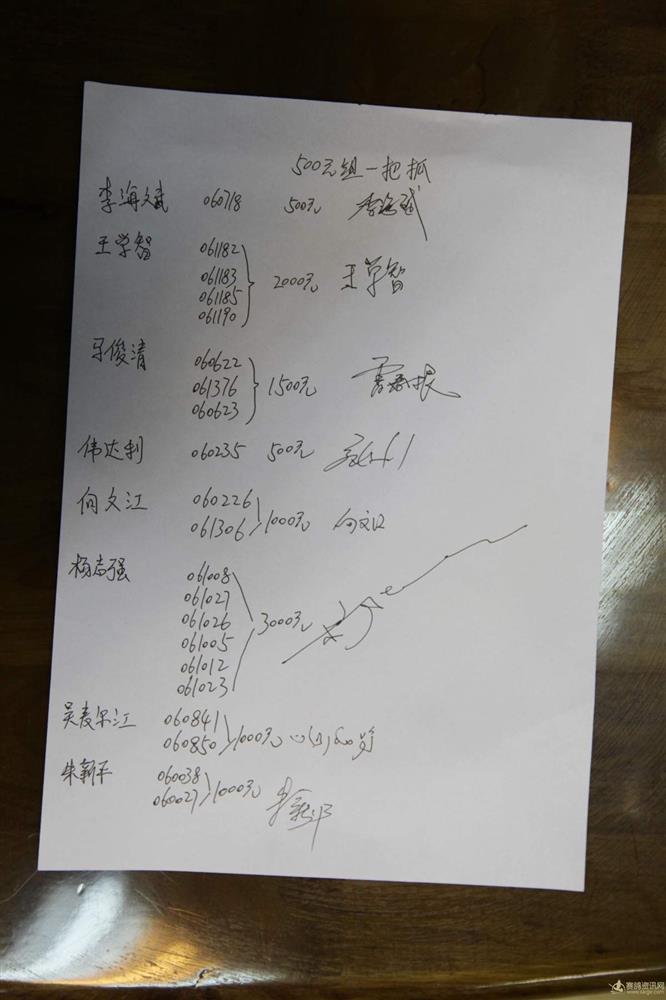 500元组一把抓
李海斌 060718 500元 李海斌
王学智 061182
061183
061185
061190
2000元 王学智
马俊清 060622
061376
060623
1500元
伟达利 060235 500元
向文江 060226
061306 1000元 向文江
杨志强 061008
061027
061026
061005
061012
061023
3000元
吴麦尔江 060841
060850 1000元
朱新平 060038
060027 1000元 朱新平
赛鸽资讯网